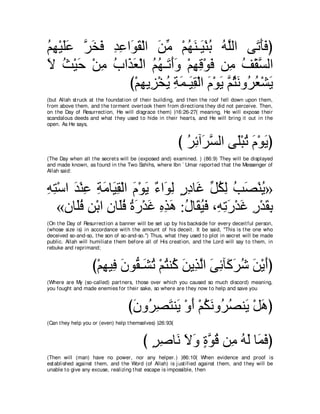 (فَأَتَى اللَّهُ بُنْيَـنَهُمْ مِّنَ الْقَوَاعِدِ فَخَرَّ عَلَيْهِمُ
السَّقْفُ مِن فَوْقِهِمْ وَأَتَـهُمُ الْعَذَابُ مِنْ حَيْثُ لاَ
يَشْعُرُونَثُمَّ يَوْمَ الْقِيَـمَةِ يُخْزِيهِمْ)
(but Allah struck at the foundation of their building, and then the roof fell down upon them,
from above them, and the torment overtook them from directions they did not perceive. Then,
on the Day of Resurrection, He will disgrace them) )16:26-27( meaning, He will expose their
scandalous deeds and what they used to hide in their hearts, and He will bring it out in the
open. As He says,
(يَوْمَ تُبْلَى السَّرَآئِرُ )
(The Day when all the secrets will be (exposed and) examined. ) (86:9) They will be displayed
and made known, as found in the Two Sahihs, where Ibn `Umar reported that the Messenger of
Allah said:
«يُنْصَبُ لِكُلِّ غَادِرٍ لِوَاءٌ يَوْمَ الْقِيَامَةِ عِنْدَ اسْتِهِ
بِقَدْرِ غَدْرَتِهِ، فَيُقَالُ: هَذِهِ غَدْرَةُ فُلَانِ ابْنِ فُلَان»
(On the Day of Resurrection a banner will be set up by his backside for every deceitful person,
(whose size is) in accordance with the amount of his deceit. It be said, "This is the one who
deceived so-and-so, the son of so-and-so.") Thus, what they used to plot in secret will be made
public. Allah will humiliate them before all of His creation, and the Lord will say to them, in
rebuke and reprimand;
(أَيْنَ شُرَكَآئِىَ الَّذِينَ كُنتُمْ تُشَـقُّونَ فِيهِمْ)
(Where are My (so-called) partners, those over which you caused so much discord) meaning,
you fought and made enemies for their sake, so where are they now to help and save you
(هَلْ يَنصُرُونَكُمْ أَوْ يَنتَصِرُونَ)
(Can they help you or (even) help themselves) )26:93(
(فَمَا لَهُ مِن قُوَّةٍ وَلاَ نَاصِرٍ )
(Then will (man) have no power, nor any helper.) )86:10( When evidence and proof is
established against them, and the Word (of Allah) is justified against them, and they will be
unable to give any excuse, realizing that escape is impossible, then